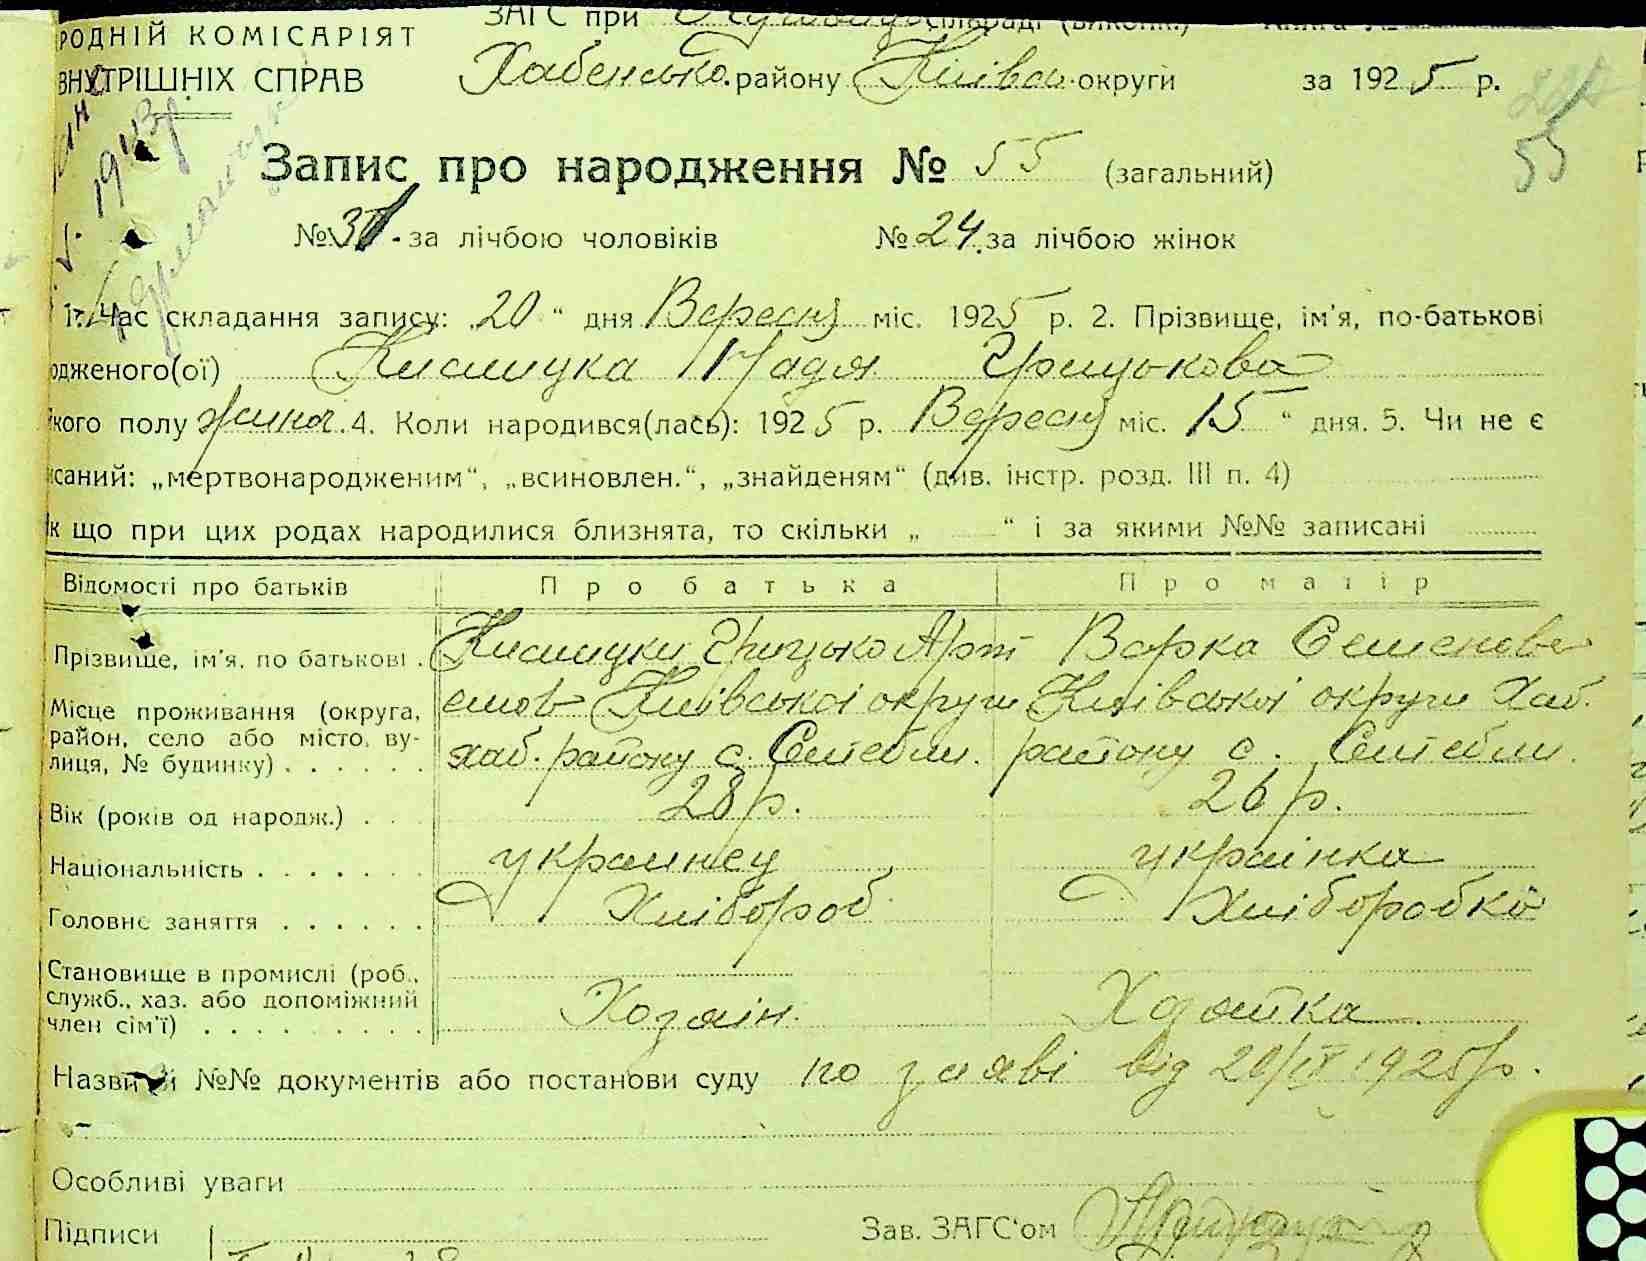 ЗАГС при
РОДНІЙ КОМІСАРІЯТ
ВНУТРІШНІХ СПРАВ Хабенсько. району Київсь. округи за 1925 р.
55
Запис про народження № 55 (загальний)
№ 31 за лічбою чоловіків № 24 за лічбою жінок
1. Час складання запису: 20 " дня Вересня міс. 1925 р. 2. Прізвище, ім'я, по-батькові
одженого(ої) Кислицка Надя Грицькова
кого полу жіноч. 4. Коли народився(лась): 1925 р. Вересня міс. 15 " дня. 5. Чи не є
исаний: „мертвонародженим", „всиновлен.", „знайденям" (див. інстр. розд. III п. 4)
к що при цих родах народилися близнята, то скільки „ " і за якими №№ записані
Відомості про батьків Про батька Про матір
Прізвище, ім'я, по батькові . Кислицки Грицько Арт Варка Семенова
емов Київської округи Київської округи Хаб.
Місце проживання (округа, район, село або місто, вулиця, № будинку) . . . . . . хаб. району с. району с.
Вік (років од народж.) . . . 28 р. 26 р.
Національність . . . . . . . украинец українка
Головне заняття . . . . . . Хлібороб Хліборобка
Становище в промислі (роб., служб., хаз. або допоміжний член сім'ї) . . . . . . . . . Хозаін
Назви й №№ документів або постанови суду по заяві від 20/IX 1925 р.
Особливі уваги
Підписи Зав. ЗАГС'ом